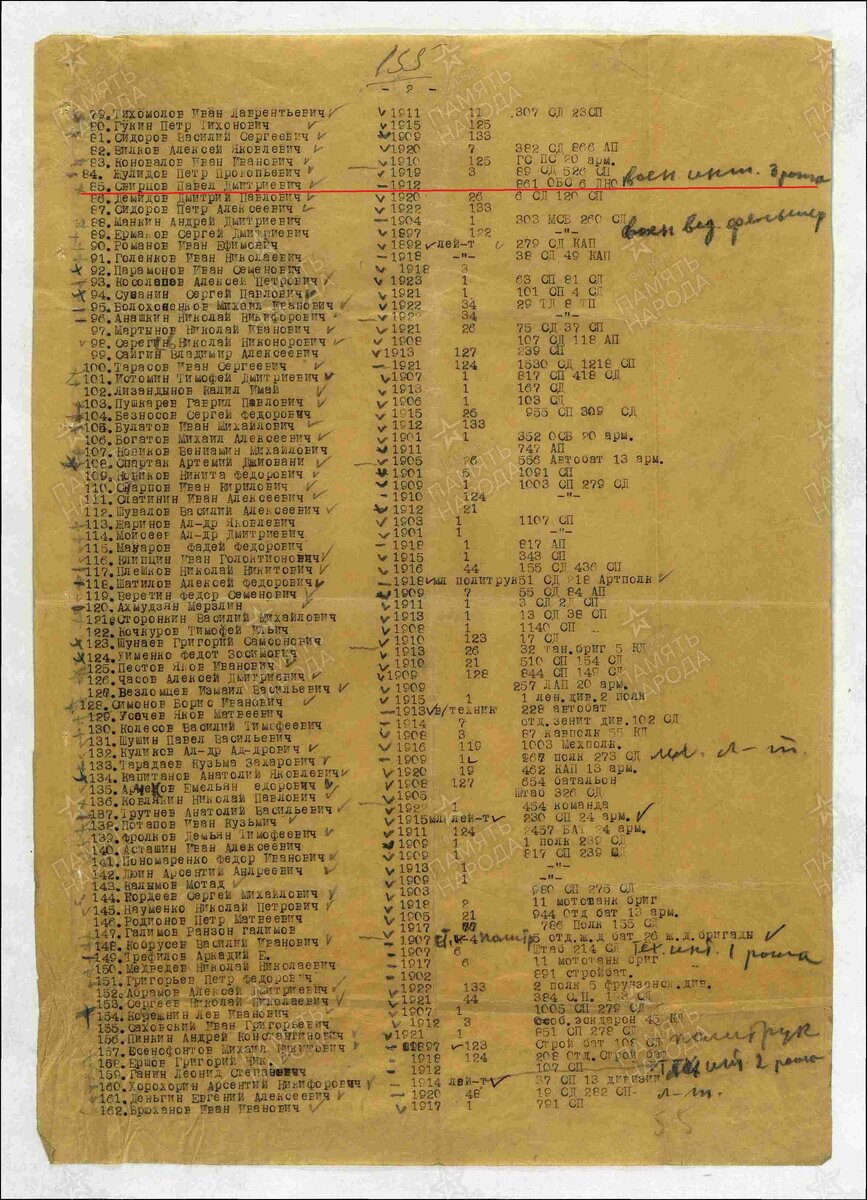 155
- 2 -
79. Тихомолов Иван Лаврентьевич 1911 11 307 СД 23СП
80. Гукин Петр Тихонович 1915 125
81. Сидоров Василий Сергеевич 1909 133
82. Вилков Алексей Яковлевич 1920 7 382 СД 866 АП
83. Коновалов Иван Иванович 1910 125 ГС ПС 20 арм.
84. Жулидов Петр Прокопьевич 1919 3 89 СД 526 СП
85. Свирцов Павел Дмитриевич 1912 861 ОБС 6 ДНО воен инт. 3 роша
86. Демидов Дмитрий Павлович 1920 26 6 СД 120 СП
87. Сидоров Петр Алексеевич 1922 133
88. Манкин Андрей Дмитриевич 1904 1 303 МСБ 260 СП
89. Ермаков Сергей Дмитриевич 1897 122 -"- воен вед. фельшер
90. Романов Иван Ефимович 1892 лей-т 279 СД КАП
91. Голенков Иван Николаевич 1918 -"- 38 СД 49 КАП
92. Парамонов Иван Семенович 1918 3
93. Косолапов Алексей Петрович 1923 1 63 СП 81 СД
94. Сусанин Сергей Павлович 1921 1 101 СП 4 СД
95. Волохоненков Михаил Иванович 1922 34 29 ТД 8 ТП
96. Анашкин Николай Никифорович 34 -"-
97. Мартынов Николай Иванович 1921 26 75 СД 37 СП
98. Серегин Николай Никонорович 1908 107 СД 118 АП
99. Сайгин Владимир Алексеевич 1913 127 239 СП
100. Тарасов Иван Сергеевич 1921 124 1530 СД 1218 СП
101. Истомин Тимофей Дмитриевич 1907 1 817 СП 418 СД
102. Лизандынов Калил Имай 1913 1 167 СД
103. Пушкарев Гаврил Павлович 1906 1 103 СД
104. Безносов Сергей Федорович 1915 26 955 СП 309 СД
105. Булатов Иван Михайлович 1912 133
106. Богатов Михаил Алексеевич 1901 1 352 ОСБ 20 арм.
107. Новиков Вениамин Михайлович 1911 747 АП
108. Спартак Артемий Джиовани 1905 26 556 Автобат 13 арм.
109. Новиков Никита Федорович 1901 5 1091 СП
110. Снарпов Иван Кирилович 1909 1 1003 СП 279 СД
111. Слатинин Иван Алексеевич 1910 124 -"-
112. Шувалов Василий Алексеевич 1912 21
113. Жаринов Ал-др Яковлевич 1903 1 1107 СП
114. Моисеев Ал-др Дмитриевич 1901 1 -"-
115. Мазуров Фадей Федорович 1918 1 817 АП
116. Клипцин Иван Голоктионович 1915 1 343 СП
117. Плешков Николай Никитович 1916 44 155 СД 436 СП
118. Шатилов Алексей Федорович 1918 мл политрук 51 СД 218 Артполк
119. Веретин Федор Семенович 1909 7 55 СД 84 АП
120. Ахмудзян Мерзлин 1911 1 3 СД 21 СП
121. Сторонкин Василий Михайлович 1913 1 13 СД 38 СП
122. Кочкуров Тимофей Ильич 1908 1 1140 СП
123. Шунаев Григорий Самсонович 1910 123 17 СД
124. Хименко Федот Зосимович 1913 26 32 тан.бриг 5 КП
125. Пестов Яков Иванович 1910 21 510 СП 154 СД
126. Часов Алексей Дмитриевич 1909 128 844 СП 149 СД
127. Везломцев Измаил Васильевич 1909 257 ЛАП 20 арм.
128. Симонов Борис Иванович 1915 1 1 лен.див.2 полк
129. Усачев Яков Матвеевич 1913 в/техник 228 автобат
130. Колесов Василий Тимофеевич 1914 7 отд.зенит див.102 СД
131. Шушин Павел Васильевич 1908 3 87 кавполк 55 КД
132. Куликов Ал-др Ал-дрович 1916 119 1003 Мехполк.
133. Тарадаев Кузьма Захарович 1909 967 полк 273 СД мл. л-т.
134. Капитанов Анатолий Яковлевич 1920 19 462 КАП 13 арм.
135. Емельян едорович 1908 127 654 батальон
136. Ковлякин Николай Павлович 1905 Штаб 326 СД
137. Трутнев Анатолий Васильевич 1 454 команда
138. Потапов Иван Кузьмич 1915 мл лей-т 230 СП 24 арм.
139. Фролков Демьян Тимофеевич 1911 124 2457 БАТ 24 арм.
140. Асташин Иван Алексеевич 1909 1 1 полк 239 СД
141. Пономаренко Федор Иванович 1909 1 817 СП 239 СД
142. Дюин Арсентий Андреевич 1913 1 -"-
143. Калымов Мотад 1909 1 -"-
144. Кордеев Сергей Михайлович 1903 980 СП 275 СД
145. Науменко Николай Петрович 1918 2 11 мототанк бриг
146. Родионов Петр Матвеевич 1905 21 944 Отд бат 13 арм.
147. Галимов Ранзон Галимов 1917 786 Полк 155 СД
148. Кобрусев Василий Иванович 1907 5 отд.ж.д бат 26 ж.д.бригады
149. Трефилов Аркадий Е. 1907 6 Штаб 214 СП тех. инт. 1 роша
150. Медведев Николай Николаевич 1917 6 11 мототанк бриг
151. Григорьев Петр Федорович 1902 891 стройбат.
152. Абрамов Алексей Дмитриевич 1922 133 2 полк 5 фрунзенск.див.
153. Сергеев Николай Николаевич 1921 44 384 С.П. СД
154. Корешнин Лев Иванович 1907 1 1005 СП 279 СД
155. Саховский Иван Григорьевич 1912 3 Особ.эскдарон 45 КД
156. Пинкин Андрей Константинович 1921 1 851 СП 278 СД политрук
157. Есенофонтов Михаил Никитович 1897 123 Строй бат 108 СД
158. Ершов Григорий Ник. 1918 124 208 Отд. Строй бат
159. Ганин Леонид Степанович 1912 107 СП инт 2 роша
160. Хорохорин Арсентий Никифорович 1914 лей-т 37 СП 13 дивизии
161. Деньгин Евгений Алексеевич 1920 48 19 СД 282 СП л-т.
162. Брюханов Иван Иванович 1917 1 791 СП
55